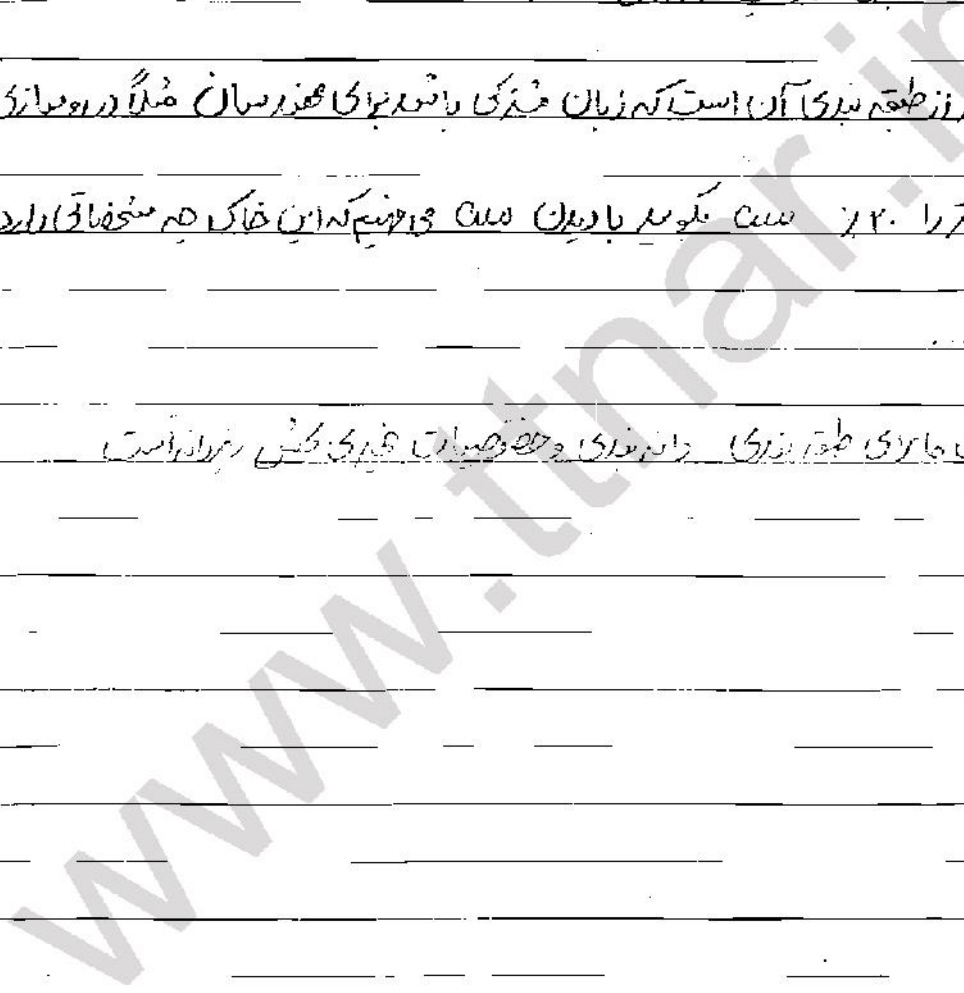 از طبقه بندی آن است که زبان مشترکی باشد برای مهندسان مثلاً در روسازی
را ۲۰٪ بگوید با دیدن می فهمیم که این خاک چه مشخصاتی دارد
برای طبقه بندی دانه بندی و خصوصیات خمیری بخش ریزدانه است
www.ttnar.ir